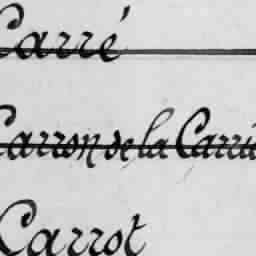 Carré
Carron de la Carri
Carrot